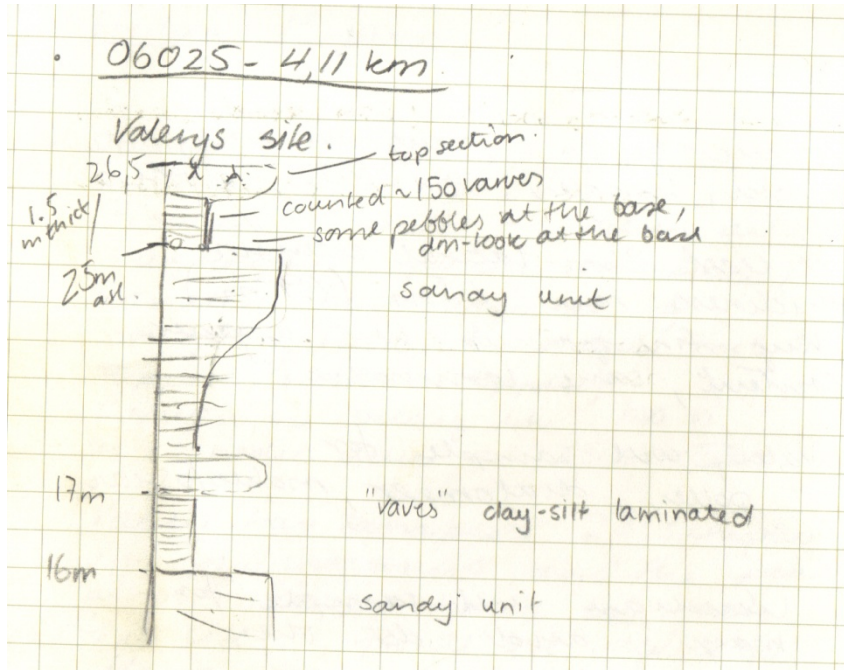 06025 - 4,11 km
Valerys site.
top section.
26,5
counted ~150 varves
1.5 m thick
some pebbles at the base,
dm-look at the base
25m asl.
sandy unit
17m
"vaves" clay-silt laminated
16m
sandy unit